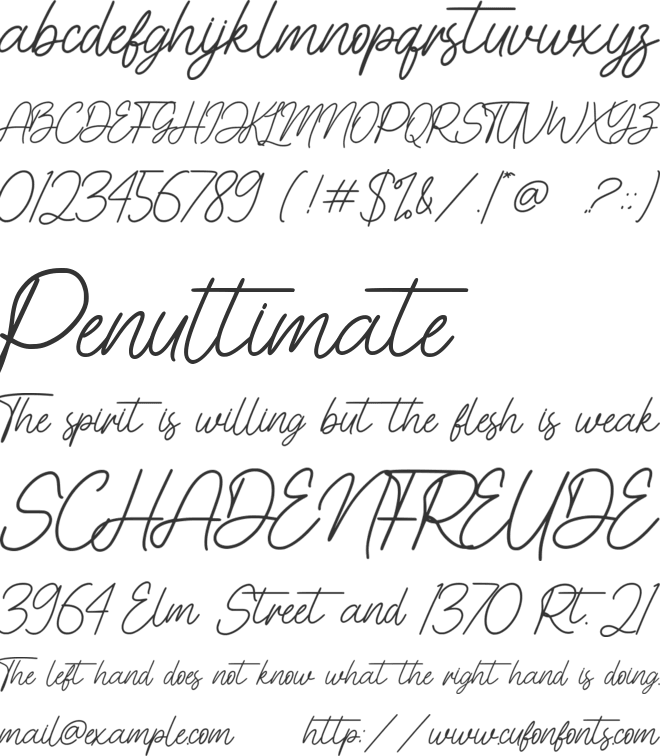 abcdefghijklmnopqrstuvwxyz
ABCDEFGHIJKLMNOPQRSTUVWXYZ
0123456789 (!#$%&/.|*@ ?:;)
Penultimate
The spirit is willing but the flesh is weak
SCHADENFREUDE
3964 Elm Street and 1370 Rt. 21
The left hand does not know what the right hand is doing.
mail@example.com http://www.cufonfonts.com